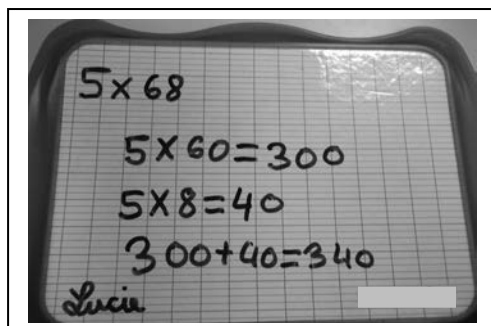 5x68
5x60=300
5x8=40
300+40=340
Lucie